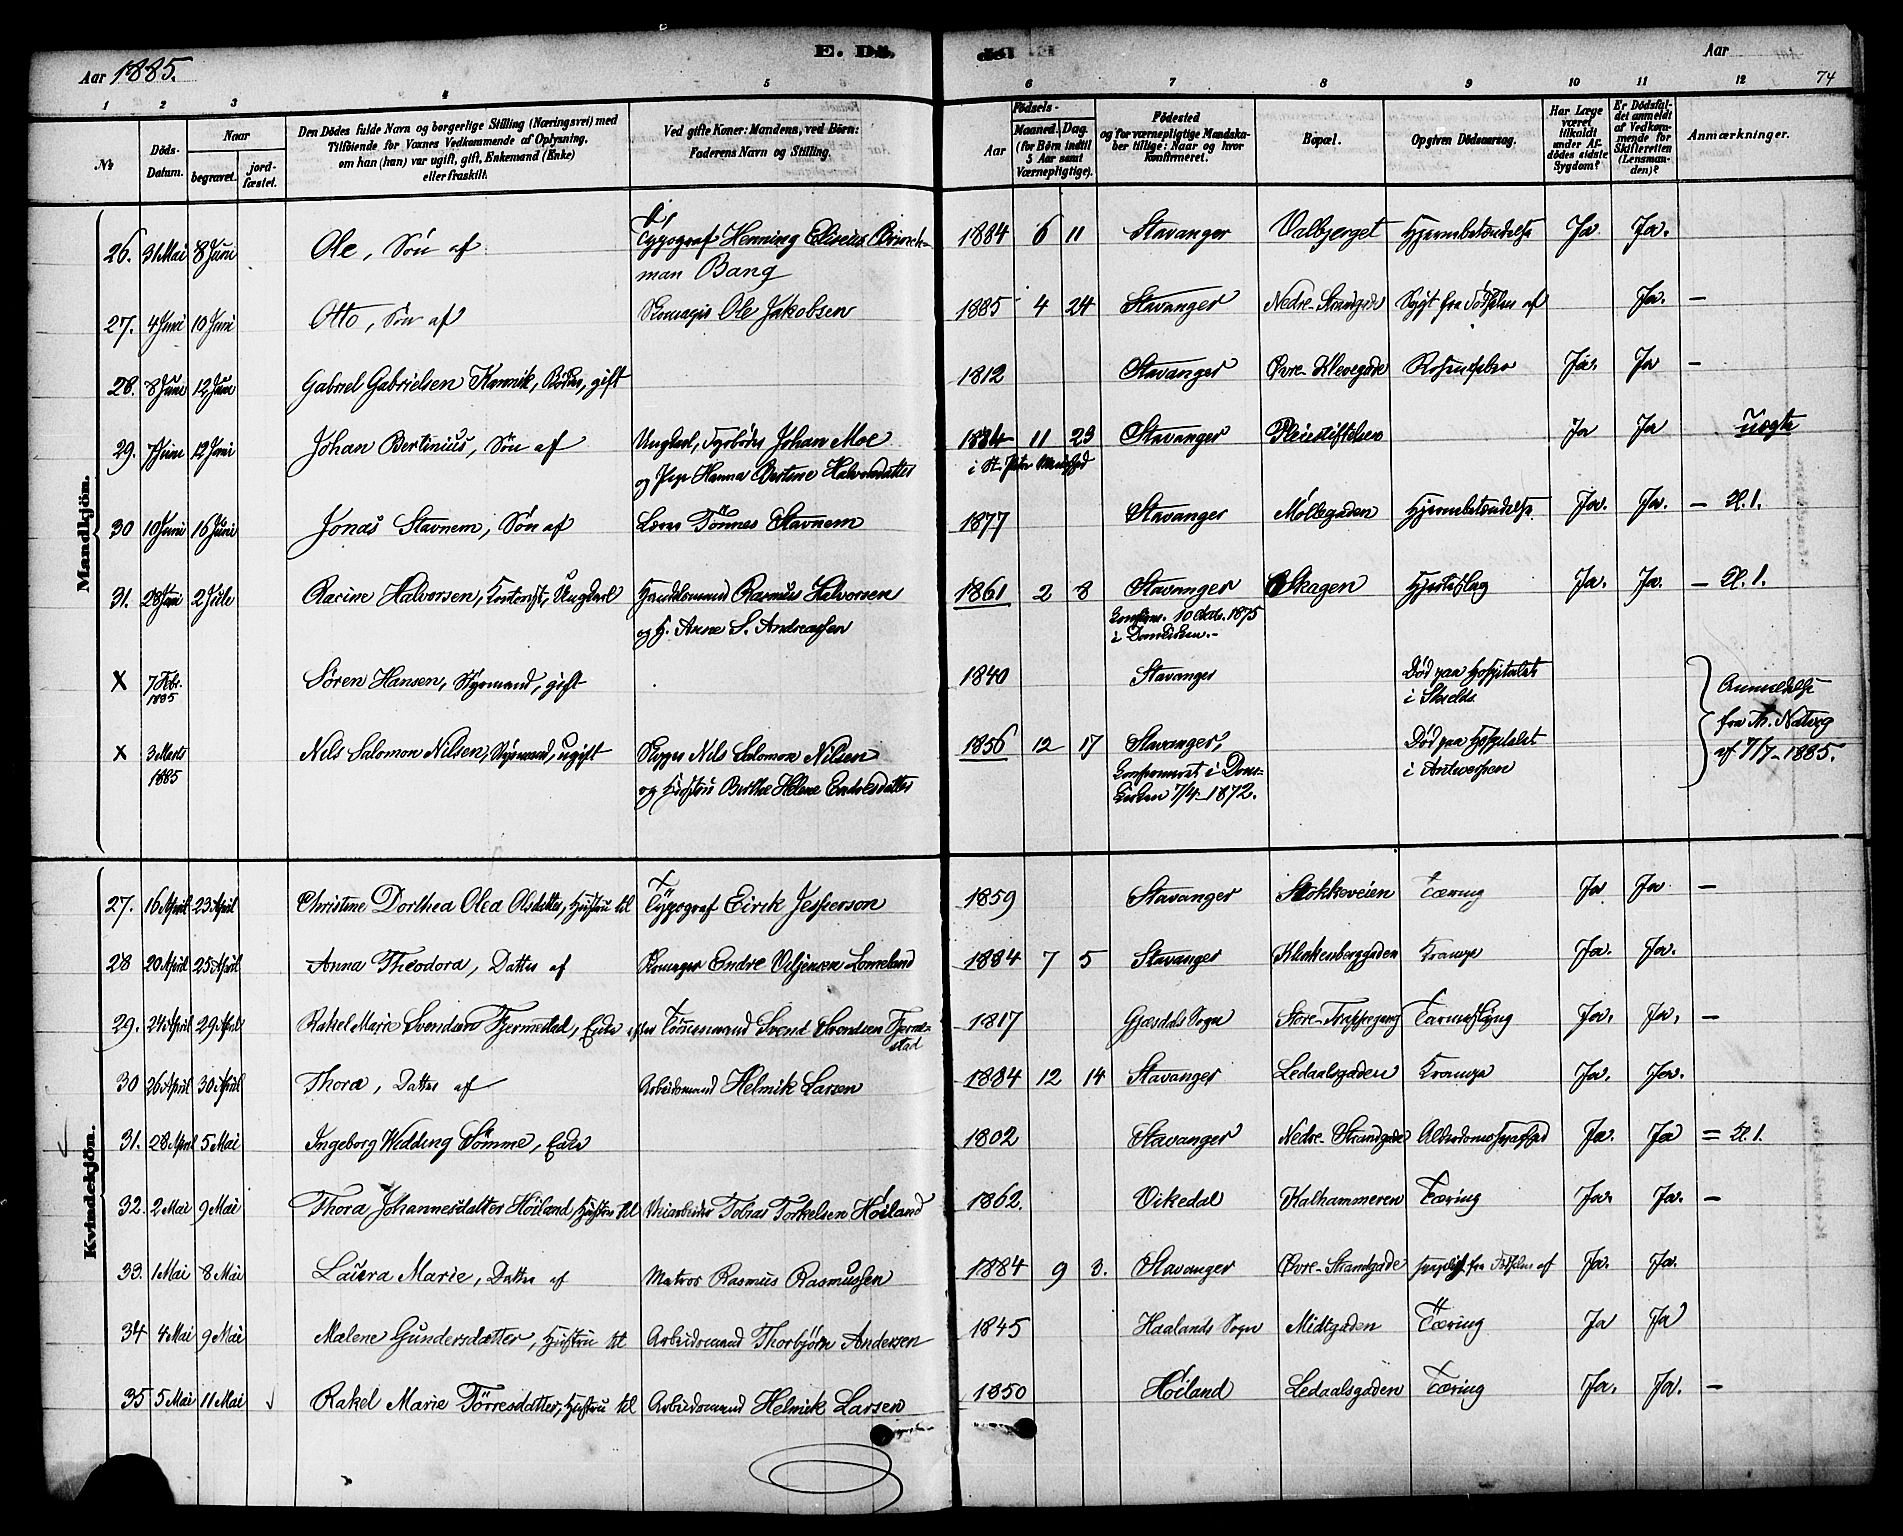 Aar 1885.
E. Dö
de
Aar
74
1 2 3 4 5 6 7 8 9 10 11 12
No
Döds-Datum.
Naar
begravet.
jord-fæstet.
Den Dödes fulde Navn og borgerlige Stilling (Næringsvei) med
Tilföiende for Voxnes Vedkommende af Oplysning,
om han (hun) var ugift, gift, Enkemand (Enke)
eller fraskilt.
Ved gifte Koner: Mandens, ved Börn:
Faderens Navn og Stilling.
Aar
Födsels-
Maaned. Dag.
(for Börn indtil
5 Aar samt
Værnepligtige).
Födested
og for værnepligtige Mandska-
ber tillige: Naar og hvor
konfirmeret.
Bopæl.
Opgiven Dödsaarsag.
Har Læge
været
tilkaldt
under Af-
dödes sidste
Sygdom?
Er Dödsfal-
det anmeldt
af Vedkom-
mende for
Skifteretten
(Lensman-
den)?
Anmærkninger.
Mandkjön.
26. 31 Mai 8 Juni Ole, Søn af Typograf Henning Eliseus Brinck- 1884 6 11 Stavanger Valbjerget Hjernebetændelse Ja Ja.
man Bang
27. 4 Juni 10 Juni Otto, Søn af Skomager Ole Jakobsen 1885 4 24 Stavanger Nedre-Strandgade Sygt fra Fødselen af Ja. —
28. 8 Juni 12 Juni Gabriel Gabrielsen Kannik, gift 1812 Stavanger Øvre-Klevegade Ja. Ja —
29. 7 Juni 12 Juni Johan Bertinius, Søn af Ungkarl, Fyrbøder Johan Moe 1884 11 23 Stavanger Pleiestiftelsen Ja Ja uægte
og Pige Hanna Bertine Halvorsdatter i St. Petri
30 10 Juni 16 Juni Jonas Stavnem, Søn af Tönnes Stavnem 1877 Stavanger Møllegaden Hjernebetændelse Ja. Ja. — Kl. 1.
31. 28 Juni 2 Juli Rasine Halvorsen, Ungkarl Handelsmand Rasmus Halvorsen 1861 2 8 Stavanger Skagen Hjerteslag Ja. Ja. — Kl. 1.
og H. Anne S. Andreassen Konfirm. 10 Oktb. 1875
i Domkirken.-
X 7 Febr. 1885 Sören Hansen, Styrmand, gift 1840 Stavanger Død paa Hospitalet
i Shields
Anmeldelse
fra Th. Natvig
af 7/7-1885.
X 3 Marts 1885 Nils Salomon Nilsen, Styrmand, ugift Skipper Nils Salomon Nilsen 1856 12 17 Stavanger, Død paa Hospitalet
og Hustru Berthe Helene Endresdatter Konfirmeret i Dom- i Antwerpen
kirken 7/4-1872.
Kvindekjön.
27. 16 April 23 April Christine Dorthea Olea Olsdatter, Hustru til Typograf Eirik Jesperson 1859 Stavanger Stokkeveien Tæring Ja Ja —
28 20 April 25 April Anna Theodora, Datter af Skomager Endre Viljensen Lomeland 1884 7 5 Stavanger Klinkenberggaden Krampe Ja. Ja.
29. 24 April 29 April Rakel Marie Fjermestad, Enke efter Tömmermand Svend Svendsen Fjerme- 1817 Gjæsdals Sogn Store-Trappegang Tarmeslyng Ja. Ja. —
stad
30 26 April 30 April Thora, Datter af Arbeidsmand Helmik Larsen 1884 12 14 Stavanger Ledaalsgaden Krampe Ja. Ja.
31. 28 April 5 Mai Ingeborg Wedding Sömme, Enke 1802 Stavanger Nedre Strandgade Alderdomssvaghed Ja. Ja = Kl. 1.
32. 2 Mai 9 Mai Thora Johannesdatter Höiland, Hustru til Veiarbeider Tobias Torkelsen Höiland 1862. Vikedal Kalhammeren Tæring Ja. Ja. —
33. 1 Mai 8 Mai Laura Marie, Datter af Matros Rasmus Rasmussen 1884 9 3. Stavanger Øvre-Strandgade svagelig fra Fødselen af Ja. Ja.
34 4 Mai 9 Mai Malene Gundersdatter, Hustru til Arbeidsmand Thorbjörn Andersen 1845 Haalands Sogn Midtgaden Tæring Ja Ja
35 5 Mai 11 Mai Rakel Marie Törresdatter, Hustru til Arbeidsmand Helmik Larsen 1850 Höiland Ledaalsgaden Tæring Ja. Ja. —